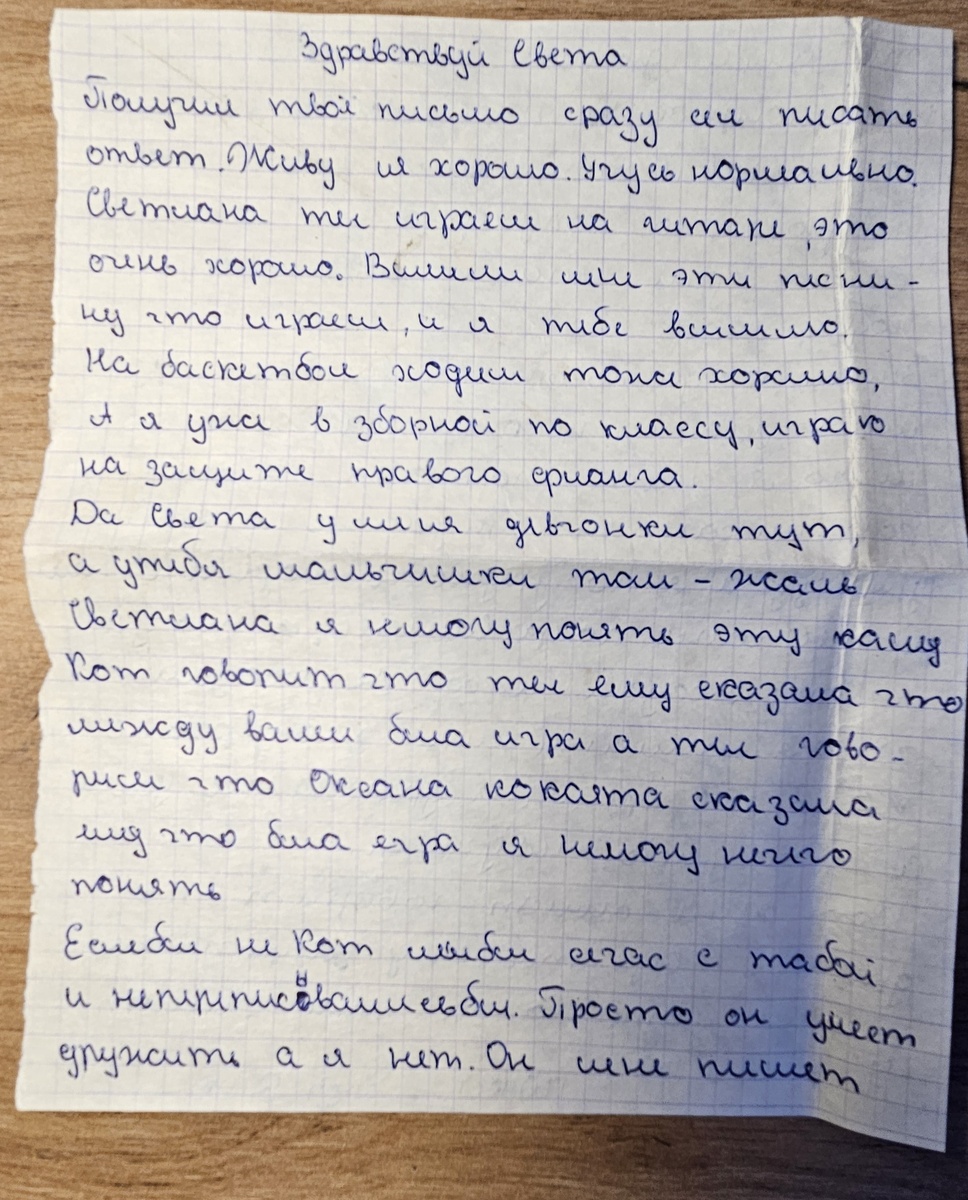 Здравствуй Света
Получил твоё письмо сразу сил писать
ответ. Живу я хорошо. Учусь нормально.
Светлана ты играеш на гитаре, это
очень хорошо. Вышли мне эти песни -
ну что играеш, и я тебе вышлю.
На баскетбол ходиш тожа хорошо,
А я ужа в зборной по классу, играю
на защите правого фланга.
Да Света у меня дівчонки тут,
а утибя мальчишки там - жаль
Светлана я немогу понять эту кашу
Кот говопит что ты ему сказала что
между вами была игра а ты гово-
риш что Оксана кокаята сказала
ему что была егра я немогу ничго
понять
Еслибы не Кот мыбы сичас с табой
и непиреписывалисьбы. Просто он умеет
дружить а я нет. Он мне пишет